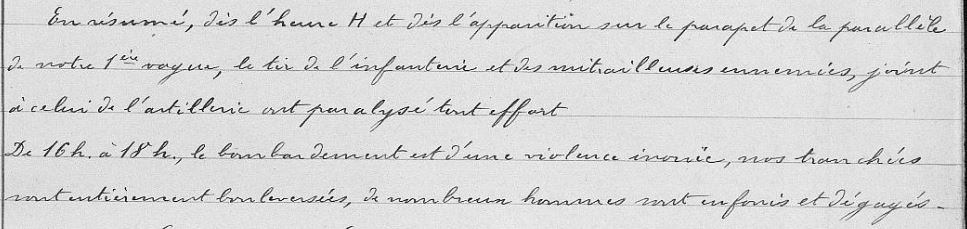 En résumé, dès l'heure H et dès l'apparition sur le parapet de la parallèle
de notre 1ère vague, le tir de l'infanterie et des mitrailleuses ennemies, joint
à celui de l'artillerie ont paralysé tout effort
De 16h. à 18h., le bombardement est d'une violence inouïe, nos tranchées
sont entièrement bouleversées, de nombreux hommes sont enfouis et dégagés.